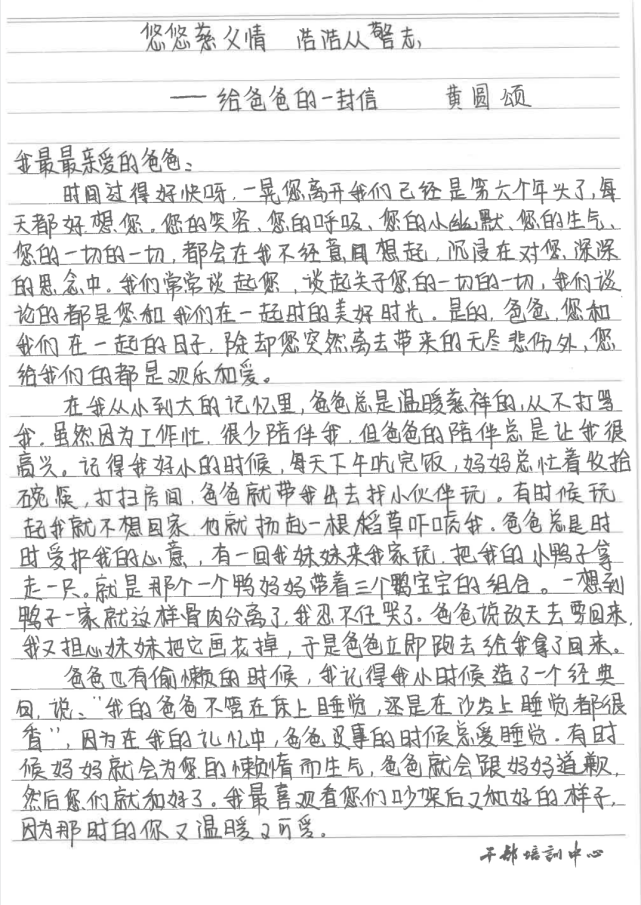 悠悠慈父情 浩浩从警志
——给爸爸的一封信 黄圆颂
我最最亲爱的爸爸：
时间过得好快呀，一晃您离开我们已经是第六个年头了，每
天都好想您。您的笑容、您的呼吸、您的小幽默、您的生气、
您的一切的一切，都会在我不经意间想起，沉浸在对您深深
的思念中。我们常常谈起您，谈起关于您的一切的一切，我们谈
论的都是您和我们在一起时的美好时光。是的，爸爸，您和
我们在一起的日子，除却您突然离去带来的无尽悲伤外，您
给我们的都是欢乐和爱。
在我从小到大的记忆里，爸爸总是温暖慈祥的，从不打骂
我。虽然因为工作忙，很少陪伴我，但爸爸的陪伴总是让我很
高兴。记得我好小的时候，每天下午吃完饭，妈妈总忙着收拾
碗筷，打扫房间，爸爸就带我出去找小伙伴玩。有时候玩
起我就不想回家，他就扬起一根稻草吓唬我。爸爸总是时
时爱护我的心意，有一回我妹妹来我家玩，把我的小鸭子拿
走一只。就是那个一个鸭妈妈带着三个鸭宝宝的组合。一想到
鸭子一家就这样骨肉分离了，我忍不住哭了。爸爸说改天去要回来，
我又担心妹妹把它画花掉，于是爸爸立即跑去给我拿了回来。
爸爸也有偷懒的时候，我记得我小时候造了一个经典
句，说：“我的爸爸不管在床上睡觉，还是在沙发上睡觉都很
香”，因为在我的记忆中，爸爸没事的时候总爱睡觉。有时
候妈妈就会为您的懒惰而生气，爸爸就会跟妈妈道歉，
然后您们就和好了。我最喜欢看您们吵架后又和好的样子，
因为那时的你又温暖又可爱。
干部培训中心